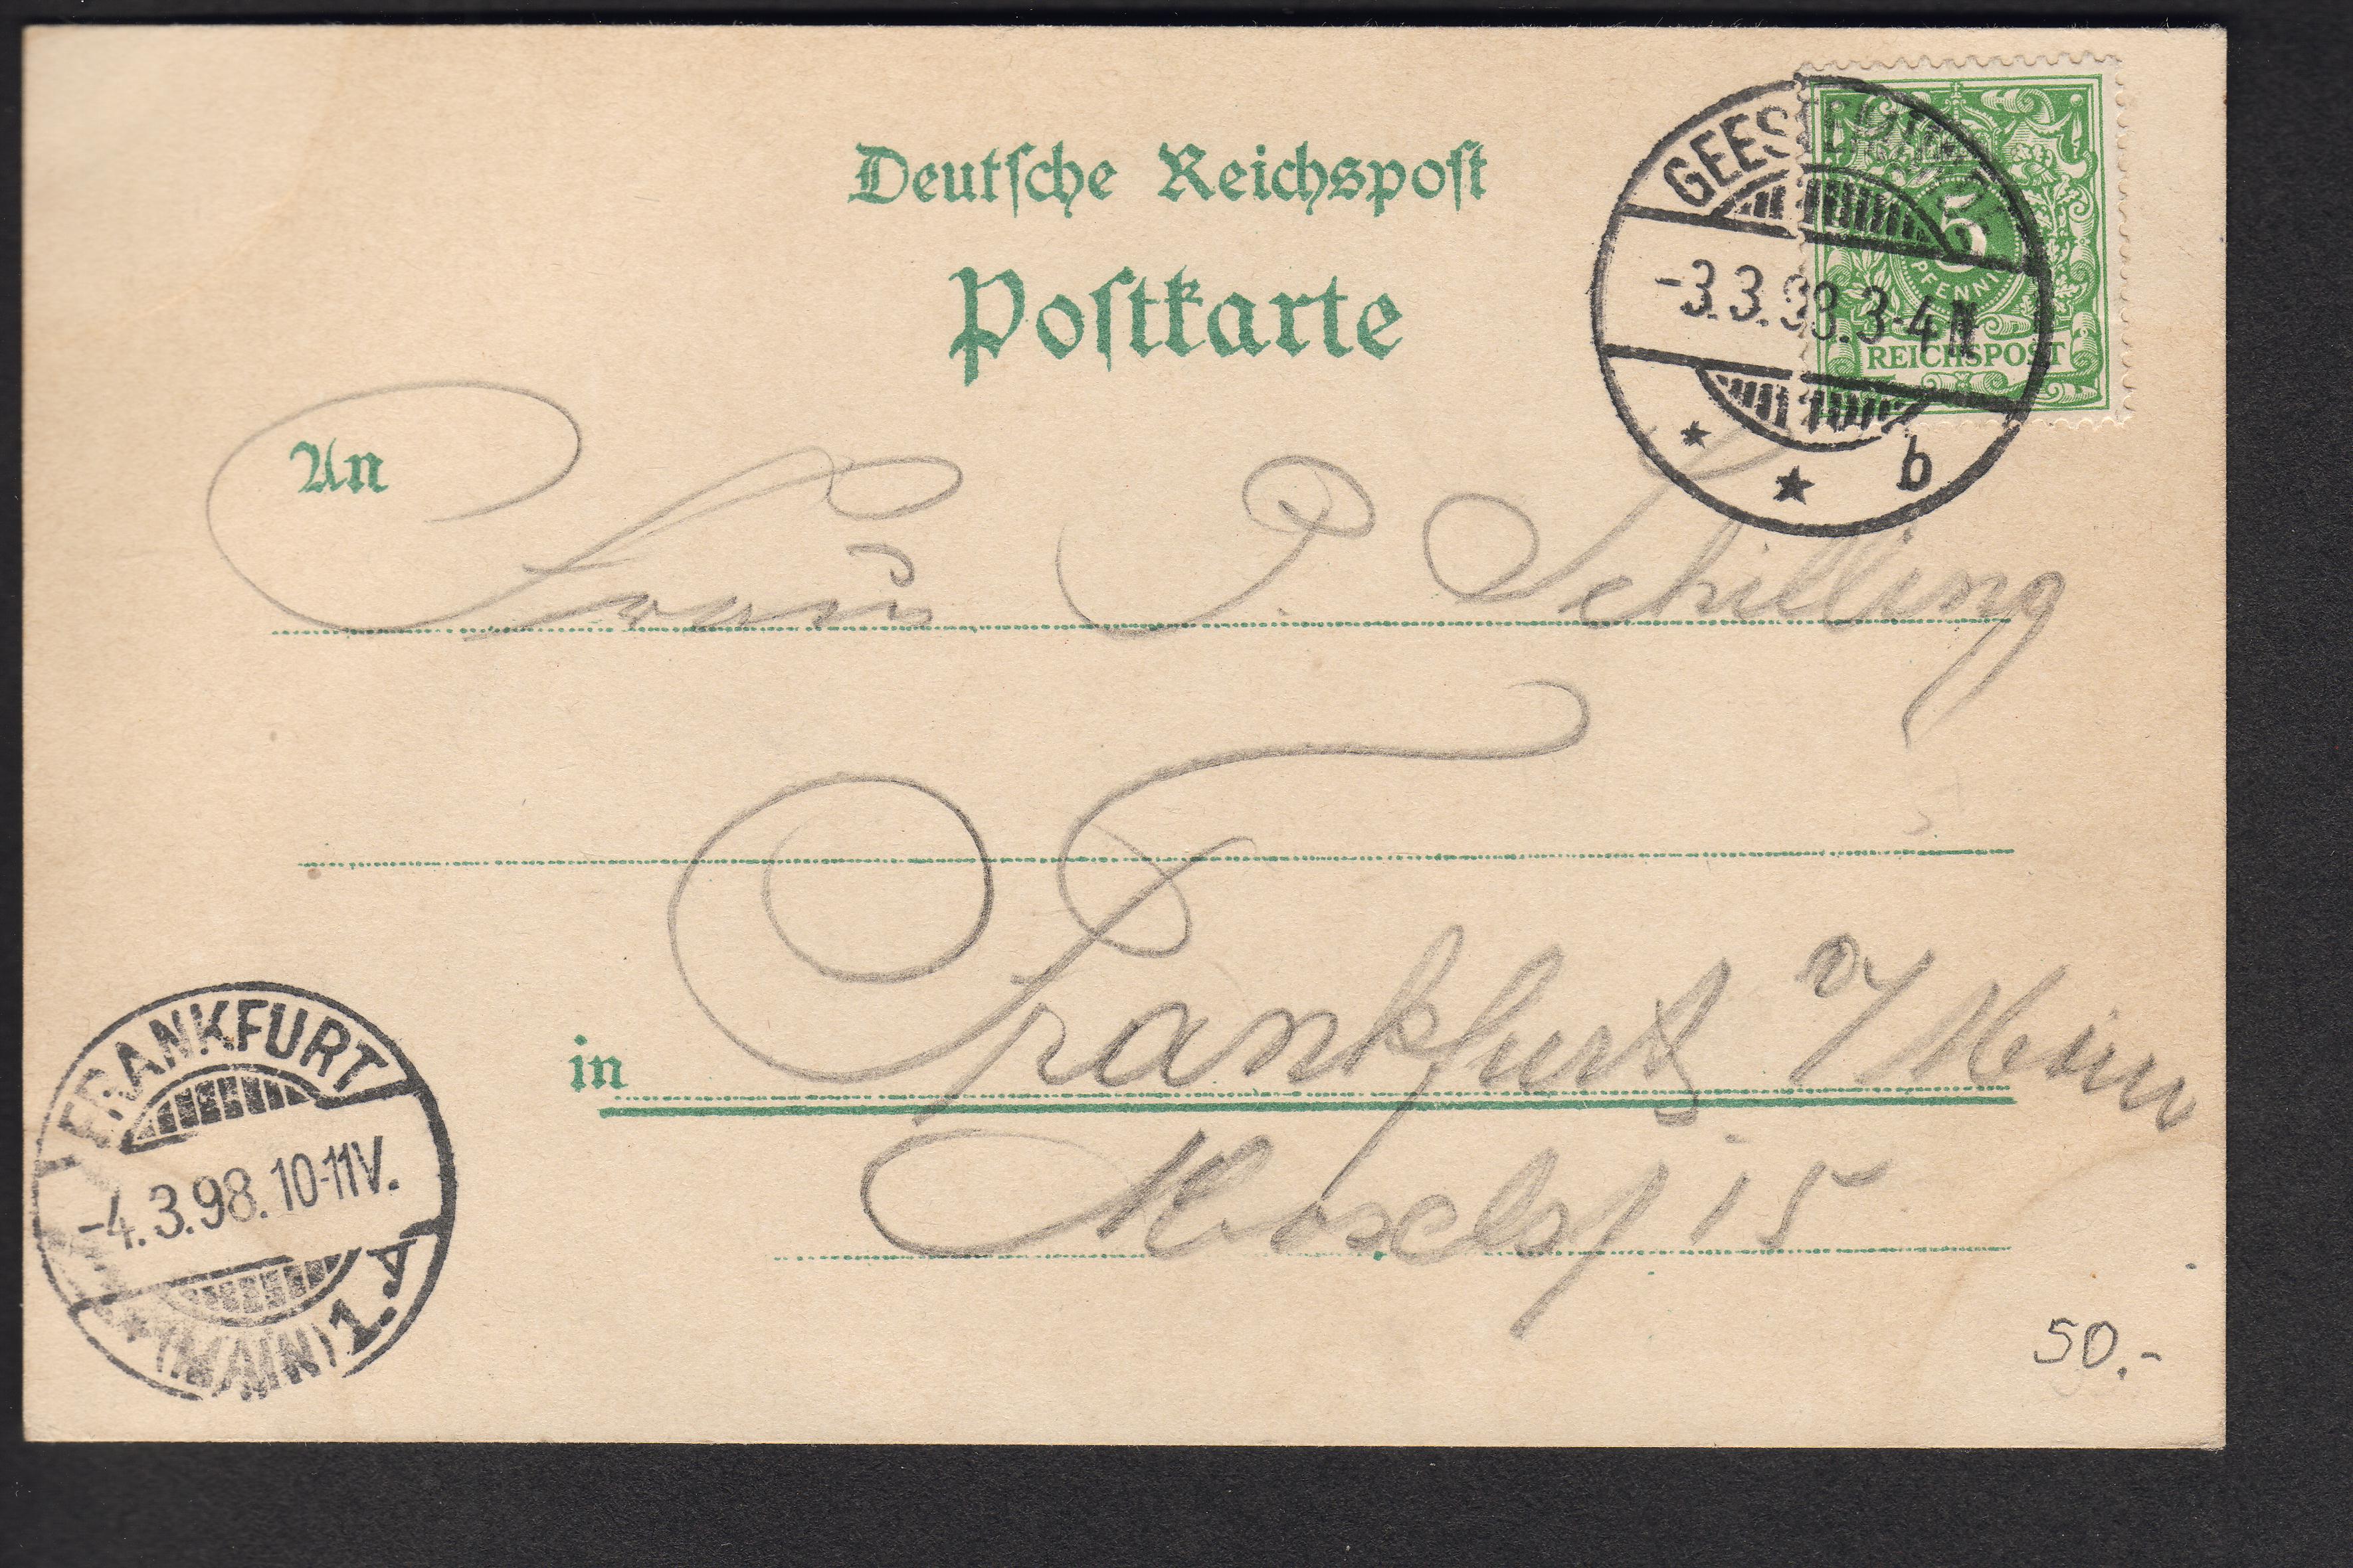 Deutsche Reichspost
Postkarte
GEESTEMÜNDE
-3.3.98.3-4N
b
5
PFENNIG
REICHSPOST
An Frau P. Schilling
in Frankfurt a/Main
Moselst 15
FRANKFURT
-4.3.98.10-11V.
(MAIN) 1. y
50.-